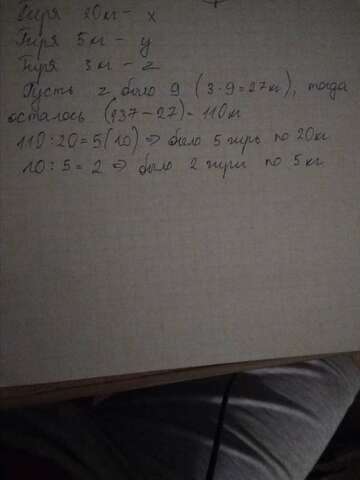 Гиря 20кг - x
Гиря 5кг - y
Гиря 3кг - z
Пусть z было 9 (3·9=27кг), тогда
осталось (137-27)=110кг
110:20=5(10) => было 5 гирь по 20кг
10:5=2 => было 2 гири по 5кг